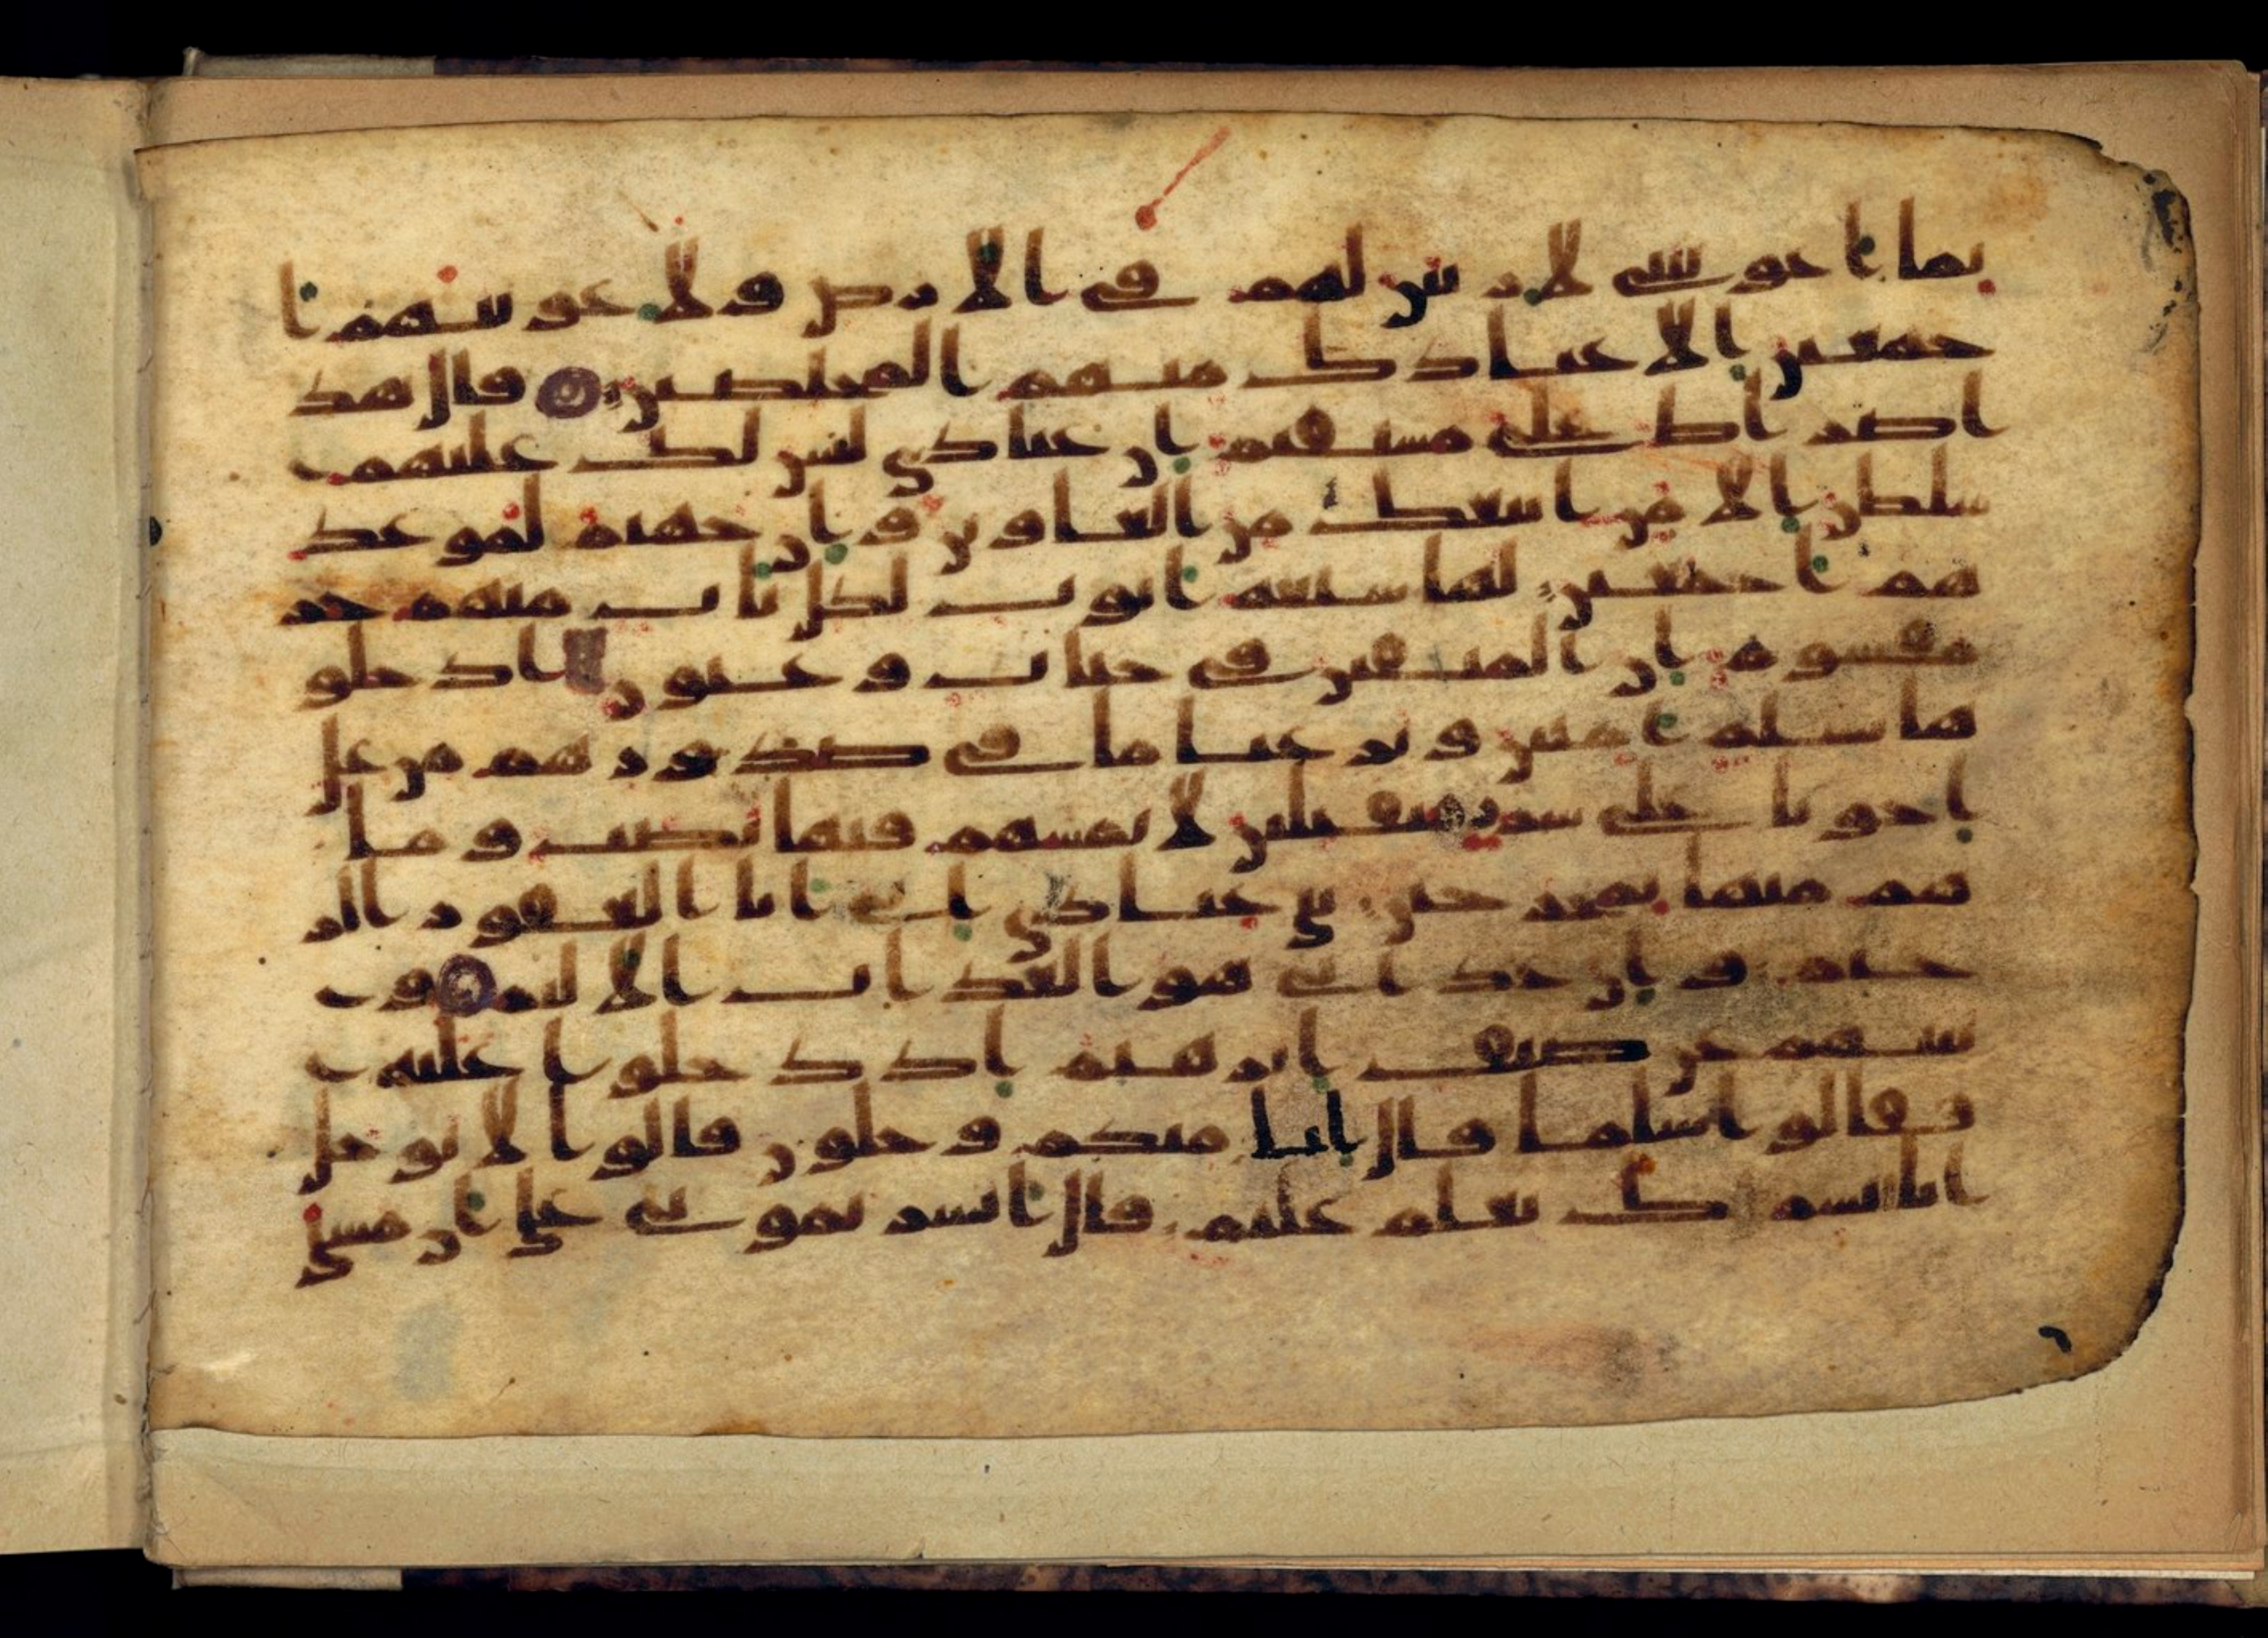 بما اغويتني لازينن لهم في الارض ولاغوينهم ا
جمعين الا عبادك منهم المخلصين قال هذ
ا صراط علي مستقيم ان عبادي ليس لك عليهم
سلطن الا من اتبعك من الغاوين وان جهنم لموعد
هم اجمعين لها سبعة ابوب لكل باب منهم جز
مقسوم ان المتقين في جنات وعيون ادخلو
ها بسلم امنين ونزعنا ما في صدورهم من غل
اخونا على سرر متقبلين لا يمسهم فيها نصب وما
هم منها بمخرجين نبي عبادي اني انا الغفور الر
حيم وان عذابي هو العذاب الاليم و
نبيهم عن ضيف ابرهيم اذ دخلوا عليه
فقالوا سلما قال انا منكم وجلون قالوا لا توجل
انا نبشرك بغلم عليم قال ابشرتموني على ان مسني